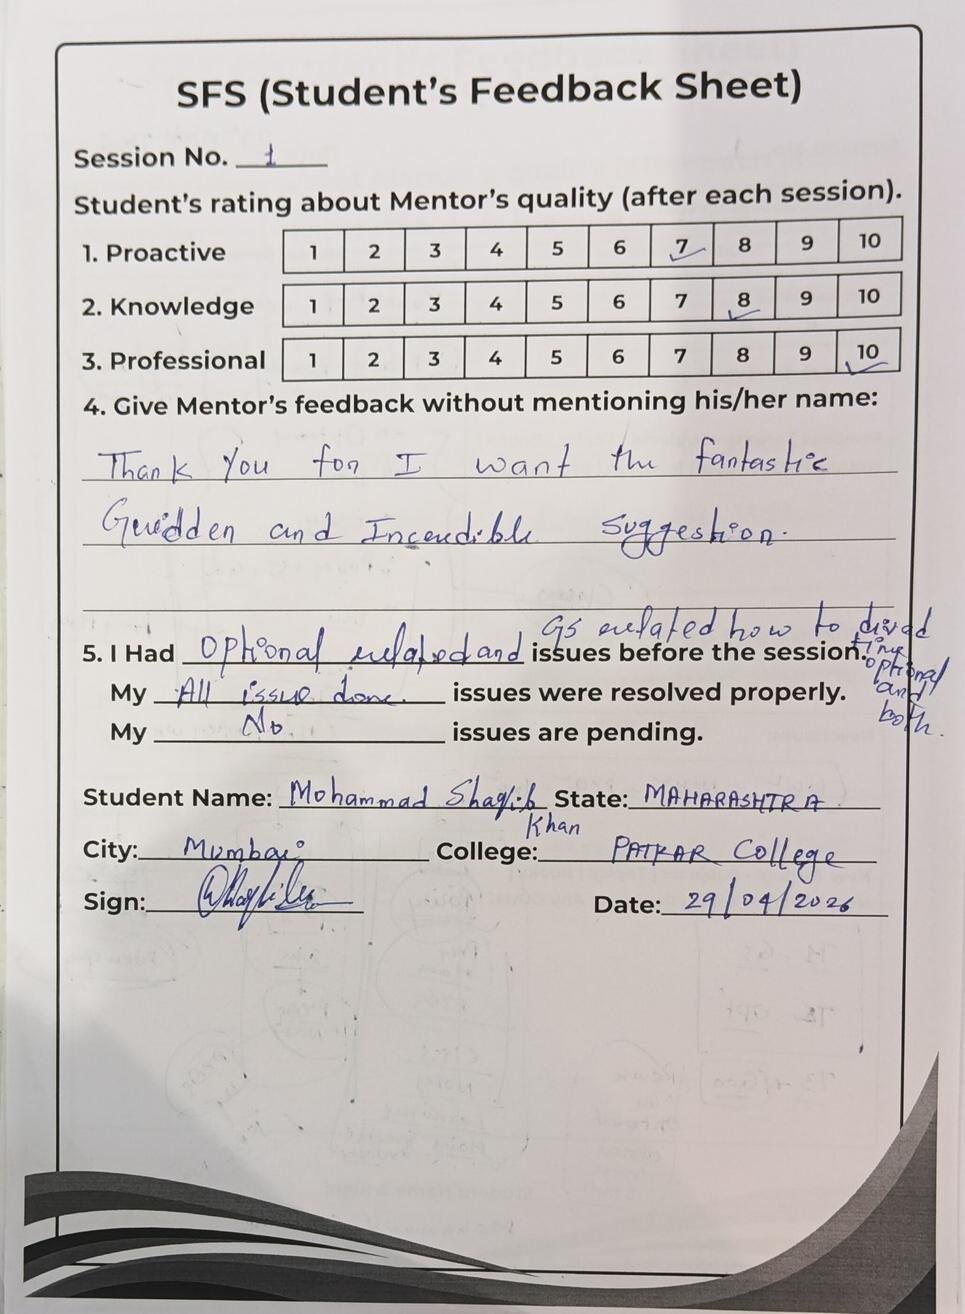 SFS (Student's Feedback Sheet)
Session No. 1
Student's rating about Mentor's quality (after each session).
1. Proactive 1 2 3 4 5 6 7 8 9 10
2. Knowledge 1 2 3 4 5 6 7 8 9 10
3. Professional 1 2 3 4 5 6 7 8 9 10
4. Give Mentor's feedback without mentioning his/her name:
Thank you for I want the fantastic
Guidden and Increudible suggestion.
GS related how to divad
5. I Had optional related and issues before the session. time
optional
My All issue done. issues were resolved properly. and
both.
My No issues are pending.
Student Name: Mohammad Shaqib State: MAHARASHTRA
Khan
City: Mumbai College: PATKAR College
Sign: Date: 29/04/2026